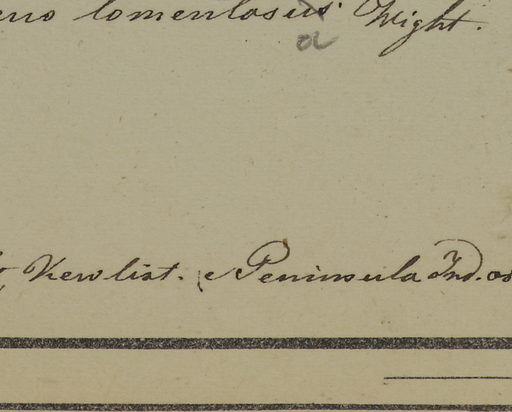 tomentosus. Wight.
a
Kew list. e Peninsula Ind. or